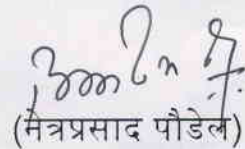 (मैत्रप्रसाद पौडेल)